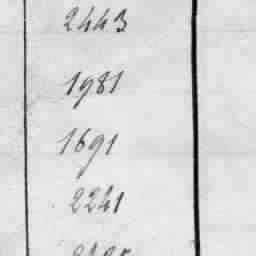 2443
1981
1691
2241